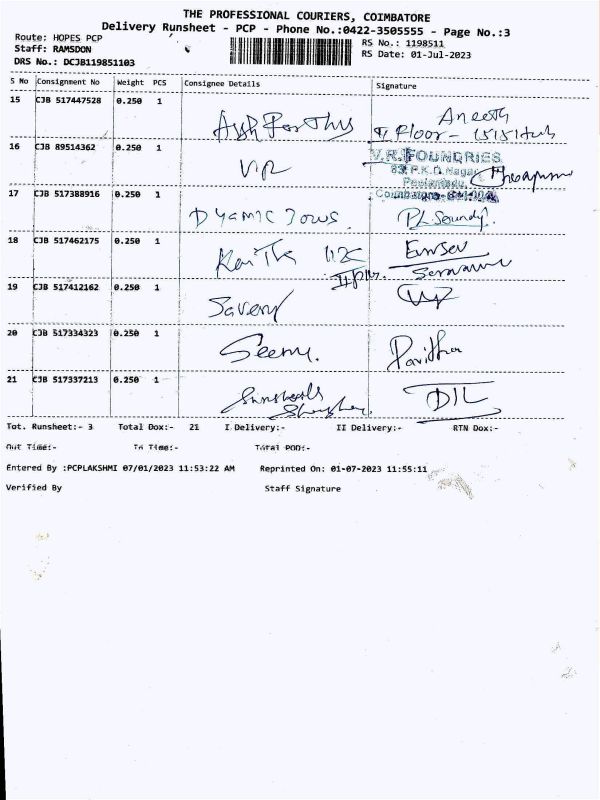 THE PROFESSIONAL COURIERS, COIMBATORE
Delivery Runsheet - PCP - Phone No.:0422-3505555 - Page No.:3
Route: HOPES PCP
RS No.: 1198511
Staff: RAMSDON
RS Date: 01-Jul-2023
DRS No.: DCJB119851103
S No Consignment No Weight PCS Consignee Details Signature
15 CJB 517447528 0.250 1
Floor -
16 CJB 89514362 0.250 1 VR
V.R. FOUNDRIES
83, P.K.D. Nagar
Peelamedu,
Coimbatore-
17 CJB 517388916 0.250 1 Dyamic Jows
18 CJB 517462175 0.250 1
19 CJB 517412162 0.250 1 Savery
20 CJB 517334323 0.250 1 Pavithra
21 CJB 517337213 0.250 1 DIL
Tot. Runsheet:- 3 Total Dox:- 21 I Delivery:- II Delivery:- RTN Dox:-
Out Time:- In Time:- Total POD:-
Entered By :PCPLAKSHMI 07/01/2023 11:53:22 AM Reprinted On: 01-07-2023 11:55:11
Verified By Staff Signature